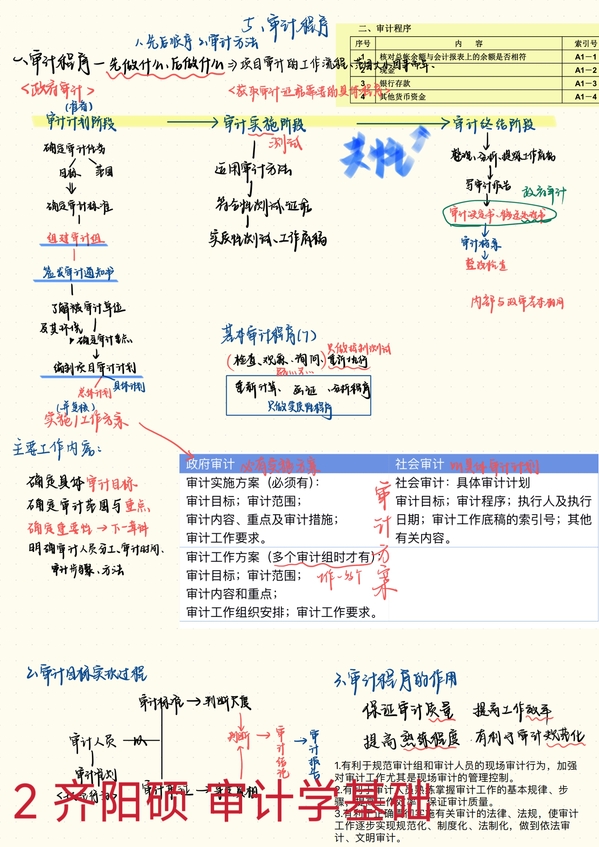 五、审计程序
1.先后顺序 2.审计方法
二、审计程序
序号 内 容 索引号
1 核对总账余额与会计报表上的余额是否相符 A1—1
2 现金 A1—2
3 银行存款 A1—3
4 其他货币资金 A1—4
一、审计程序—先做什么、后做什么⇒项目审计的工作流程、
<政府审计>
<获取审计证据
审计计划阶段 → 审计实施阶段 → 审计终结阶段
确定审计任务
目标 范围
确定审计标准
组建审计组
签发审计通知书
了解被审计单位
及其环境
确定审计重点
编制项目审计计划
总体计划 具体计划
实施/工作方案
测试
运用审计方法
符合性测试、证据
实质性测试、工作底稿
写审计报告
政府审计
审计档案
基本审计程序(7)
(检查、观察、询问、重新执行
只做控制测试
重新计算、函证、分析程序
只做实质性程序
主要工作内容:
确定具体审计目标
确定审计范围与重点
确定重要性→下一章讲
明确审计人员分工、审计时间、
审计步骤、方法
政府审计 必有实施方案
审计实施方案（必须有）：
审计目标；审计范围；
审计内容、重点及审计措施；
审计工作要求。
审计工作方案（多个审计组时才有）：
审计目标；审计范围；
审计内容和重点；
审计工作组织安排；审计工作要求。
审计方案
社会审计
社会审计：具体审计计划
审计目标；审计程序；执行人及执行
日期；审计工作底稿的索引号；其他
有关内容。
2.审计目标实现过程
审计标准→判断尺度
审计人员
判断→审计结论→审计报告
3.审计程序的作用
保证审计质量 提高工作效率
提高熟练程度 有利于审计规范化
1.有利于规范审计组和审计人员的现场审计行为，加强
对审计工作尤其是现场审计的管理控制。
2.有利于审计人员熟练掌握审计工作的基本规律、步
骤，提高工作效率，保证审计质量。
3.有利于正确贯彻实施有关审计的法律、法规，使审计
工作逐步实现规范化、制度化、法制化，做到依法审
计、文明审计。
2 齐阳硕 审计学基础